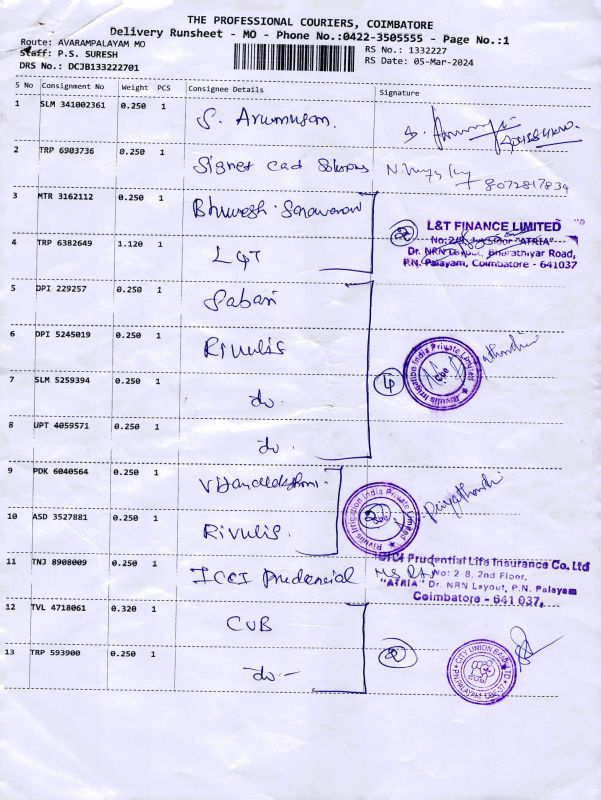 THE PROFESSIONAL COURIERS, COIMBATORE
Delivery Runsheet - MO - Phone No.:0422-3505555 - Page No.:1
Route: AVARAMPALAYAM MO
RS No.: 1332227
Staff: P.S. SURESH
RS Date: 05-Mar-2024
DRS No.: DCJB133222701
S No Consignment No Weight PCS Consignee Details Signature
1 SLM 341002361 0.250 1 S. Arumugam.
2 TRP 6903736 0.250 1 Signet cad Solutions 8072817834
3 MTR 3162112 0.250 1 Bhuvesh
L&T FINANCE LIMITED
No:2/8, "ATRIA"
4 TRP 6382649 1.120 1 L&T
Dr. NRN Layout, Bharathiyar Road,
P.N. Palayam, Coimbatore - 641037
5 DPI 229257 0.250 1 Sabari
6 DPI 5245019 0.250 1 Rivulis
Rivulis Irrigation India Private Limited
7 SLM 5259394 0.250 1 do.
4
8 UPT 4059571 0.250 1 do.
9 PDK 6040564 0.250 1
10 ASD 3527881 0.250 1 Rivulis.
Rivulis Irrigation India Private Limited
11 TNJ 8908009 0.250 1 ICICI Prudencial
ICICI Prudential Life Insurance Co. Ltd
No: 2-8, 2nd Floor,
"ATRIA" Dr. NRN Layout, P.N. Palayam
Coimbatore - 641 037.
12 TVL 4718061 0.320 1 CUB
13 TRP 593900 0.250 1 do -
CITY UNION BANK LTD